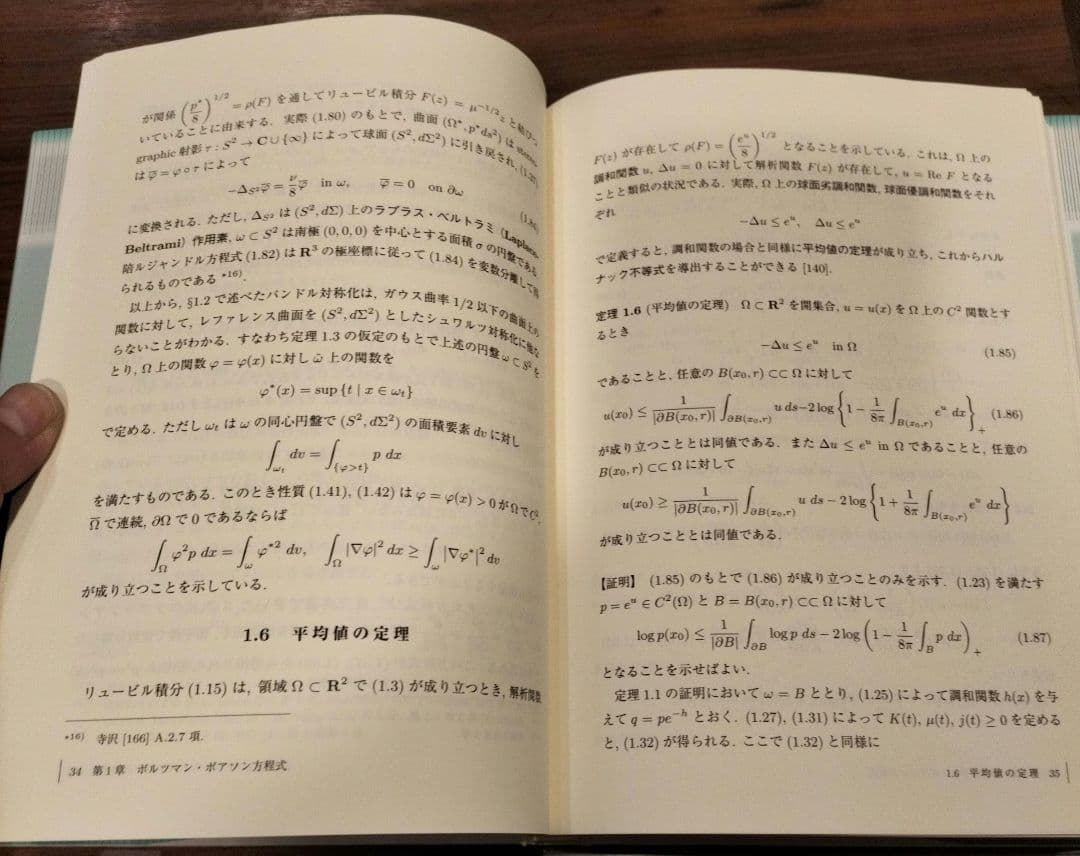 が関係 (p*/8)^{1/2} = ρ(F) を通してリュービル積分 F(z) = μ^{-1/2}z と結びつ
いていることに由来する. 実際 (1.80) のもとで, 曲面 (Ω*, p*ds²) は stereo-
graphic 射影 τ : S² → C∪{∞} によって球面 (S², dΣ²) に引き戻され,
は φ̄ = φ∘τ によって
-Δ_{S²}φ̄ = ν/8 φ̄ in ω, φ̄ = 0 on ∂ω
に変換される. ただし, Δ_{S²} は (S², dΣ) 上のラプラス・ベルトラミ (Laplace-
Beltrami) 作用素, ω ⊂ S² は南極 (0,0,0) を中心とする面積 σ の円盤である
陪ルジャンドル方程式 (1.82) は R³ の極座標に従って (1.84) を変数分離して得
られるものである *16).
以上から, §1.2 で述べたバンドル対称化は, ガウス曲率 1/2 以下の曲面上の
関数に対して, レファレンス曲面を (S², dΣ²) としたシュワルツ対称化に他な
らないことがわかる. すなわち定理 1.3 の仮定のもとで上述の円盤 ω ⊂ S² を
とり, Ω 上の関数 φ = φ(x) に対し ω̄ 上の関数を
φ*(x) = sup {t | x ∈ ω_t}
で定める. ただし ω_t は ω の同心円盤で (S², dΣ²) の面積要素 dv に対し
∫_{ω_t} dv = ∫_{{φ>t}} p dx
を満たすものである. このとき性質 (1.41), (1.42) は φ = φ(x) > 0 が Ω で C²,
Ω̄ で連続, ∂Ω で 0 であるならば
∫_Ω φ²p dx = ∫_ω φ*² dv, ∫_Ω |∇φ|² dx ≥ ∫_ω |∇φ*|² dv
が成り立つことを示している.
1.6 平均値の定理
リュービル積分 (1.15) は, 領域 Ω ⊂ R² で (1.3) が成り立つとき, 解析関数
*16) 寺沢 [166] A.2.7 項.
34 第 1 章 ボルツマン・ポアソン方程式
F(z) が存在して ρ(F) = (e^u/8)^{1/2} となることを示している. これは, Ω 上の
調和関数 u, Δu = 0 に対して解析関数 F(z) が存在して, u = Re F となる
ことと類似の状況である. 実際, Ω 上の球面劣調和関数, 球面優調和関数をそれ
ぞれ
-Δu ≤ e^u, Δu ≤ e^u
で定義すると, 調和関数の場合と同様に平均値の定理が成り立ち, これからハル
ナック不等式を導出することができる [140].
定理 1.6 (平均値の定理) Ω ⊂ R² を開集合, u = u(x) を Ω 上の C² 関数とす
るとき
-Δu ≤ e^u in Ω (1.85)
であることと, 任意の B(x₀, r) ⊂⊂ Ω に対して
u(x₀) ≤ 1/|∂B(x₀,r)| ∫_{∂B(x₀,r)} u ds - 2 log {1 - 1/8π ∫_{B(x₀,r)} e^u dx}₊ (1.86)
が成り立つこととは同値である. また Δu ≤ e^u in Ω であることと, 任意の
B(x₀, r) ⊂⊂ Ω に対して
u(x₀) ≥ 1/|∂B(x₀,r)| ∫_{∂B(x₀,r)} u ds - 2 log {1 + 1/8π ∫_{B(x₀,r)} e^u dx}
が成り立つこととは同値である.
【証明】 (1.85) のもとで (1.86) が成り立つことのみを示す. (1.23) を満たす
p = e^u ∈ C²(Ω) と B = B(x₀, r) ⊂⊂ Ω に対して
log p(x₀) ≤ 1/|∂B| ∫_{∂B} log p ds - 2 log (1 - 1/8π ∫_B p dx)₊ (1.87)
となることを示せばよい.
定理 1.1 の証明において ω = B ととり, (1.25) によって調和関数 h(x) を与
えて q = pe^{-h} とおく. (1.27), (1.31) によって K(t), μ(t), j(t) ≥ 0 を定める
と, (1.32) が得られる. ここで (1.32) と同様に
1.6 平均値の定理 35